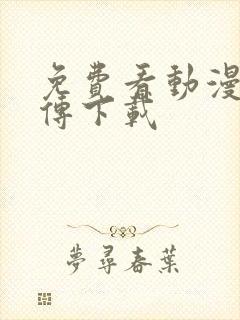 免費看動漫
傳下載
夢尋春葉